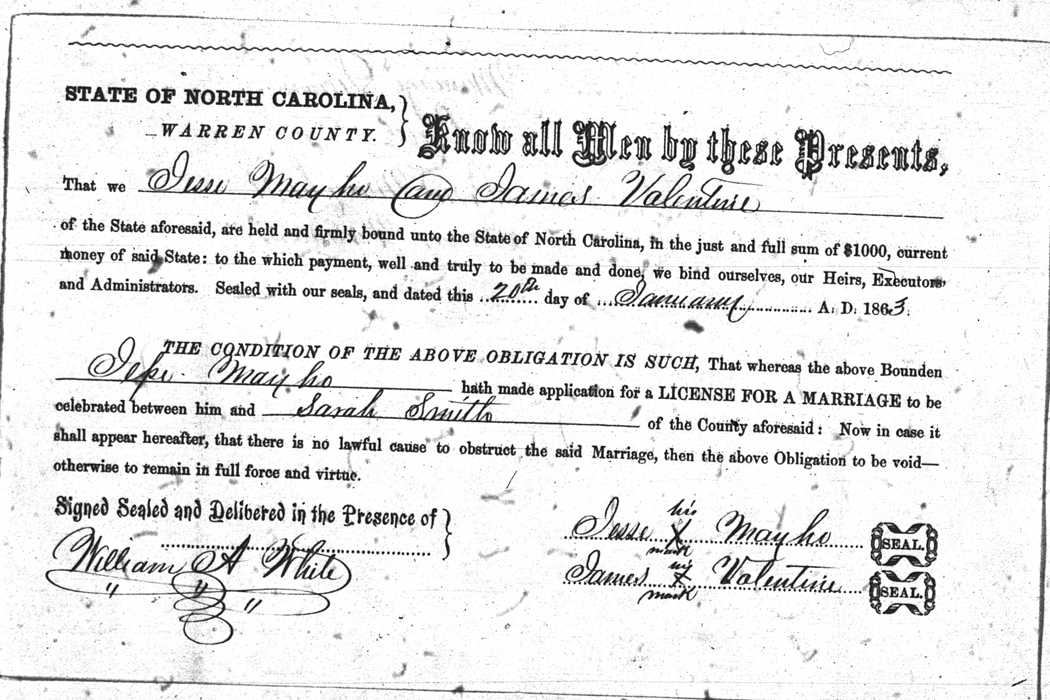 STATE OF NORTH CAROLINA,
WARREN COUNTY.
Know all Men by these Presents,
That we Jesse Mayho and James Valentine
of the State aforesaid, are held and firmly bound unto the State of North Carolina, in the just and full sum of $1000, current
money of said State: to the which payment, well and truly to be made and done, we bind ourselves, our Heirs, Executors,
and Administrators. Sealed with our seals, and dated this 20th day of January A. D. 1863.
THE CONDITION OF THE ABOVE OBLIGATION IS SUCH, That whereas the above Bounden
Jesse Mayho hath made application for a LICENSE FOR A MARRIAGE to be
celebrated between him and Sarah Smith of the County aforesaid: Now in case it
shall appear hereafter, that there is no lawful cause to obstruct the said Marriage, then the above Obligation to be void—
otherwise to remain in full force and virtue.
Signed Sealed and Delivered in the Presence of
William A White
his
Jesse X Mayho SEAL.
mark
James X Valentine SEAL.
mark